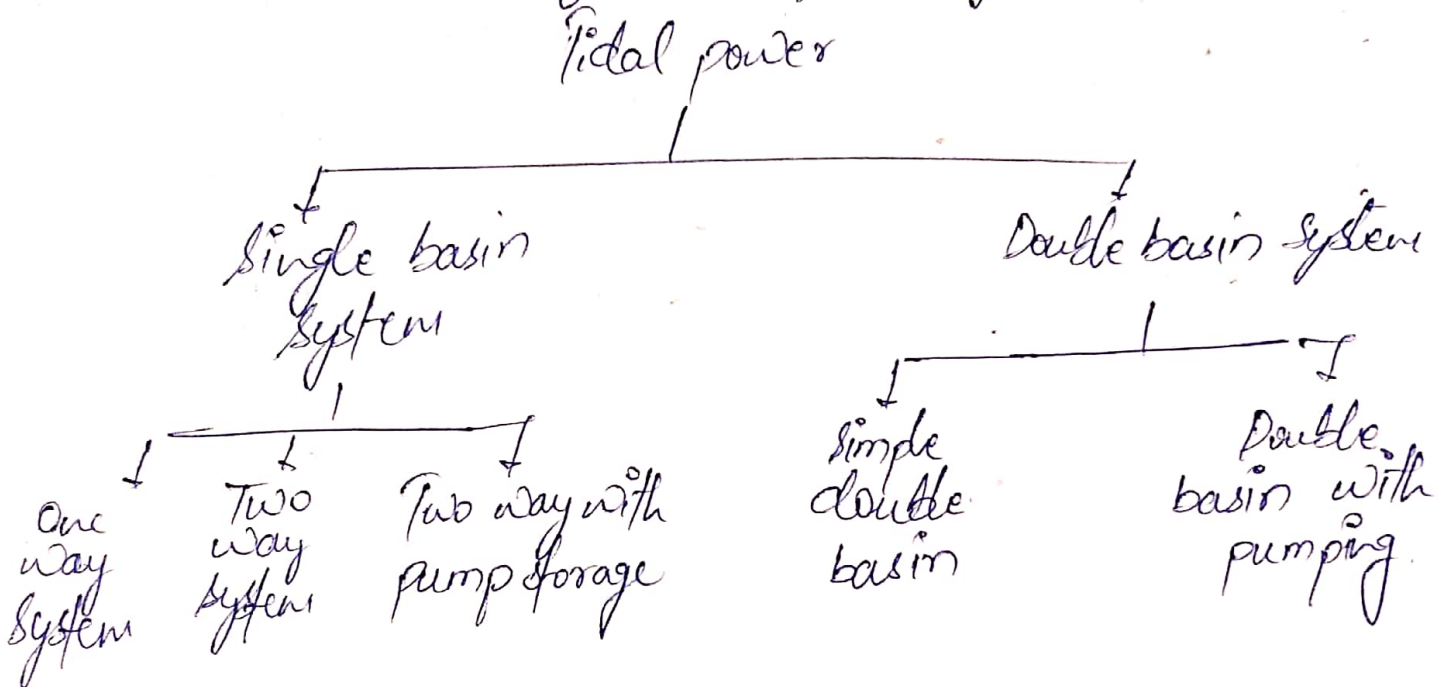 Tidal power
Single basin
system
Double basin system
One
way
system
Two
way
system
Two way with
pump storage
Simple
double
basin
Double
basin with
pumping